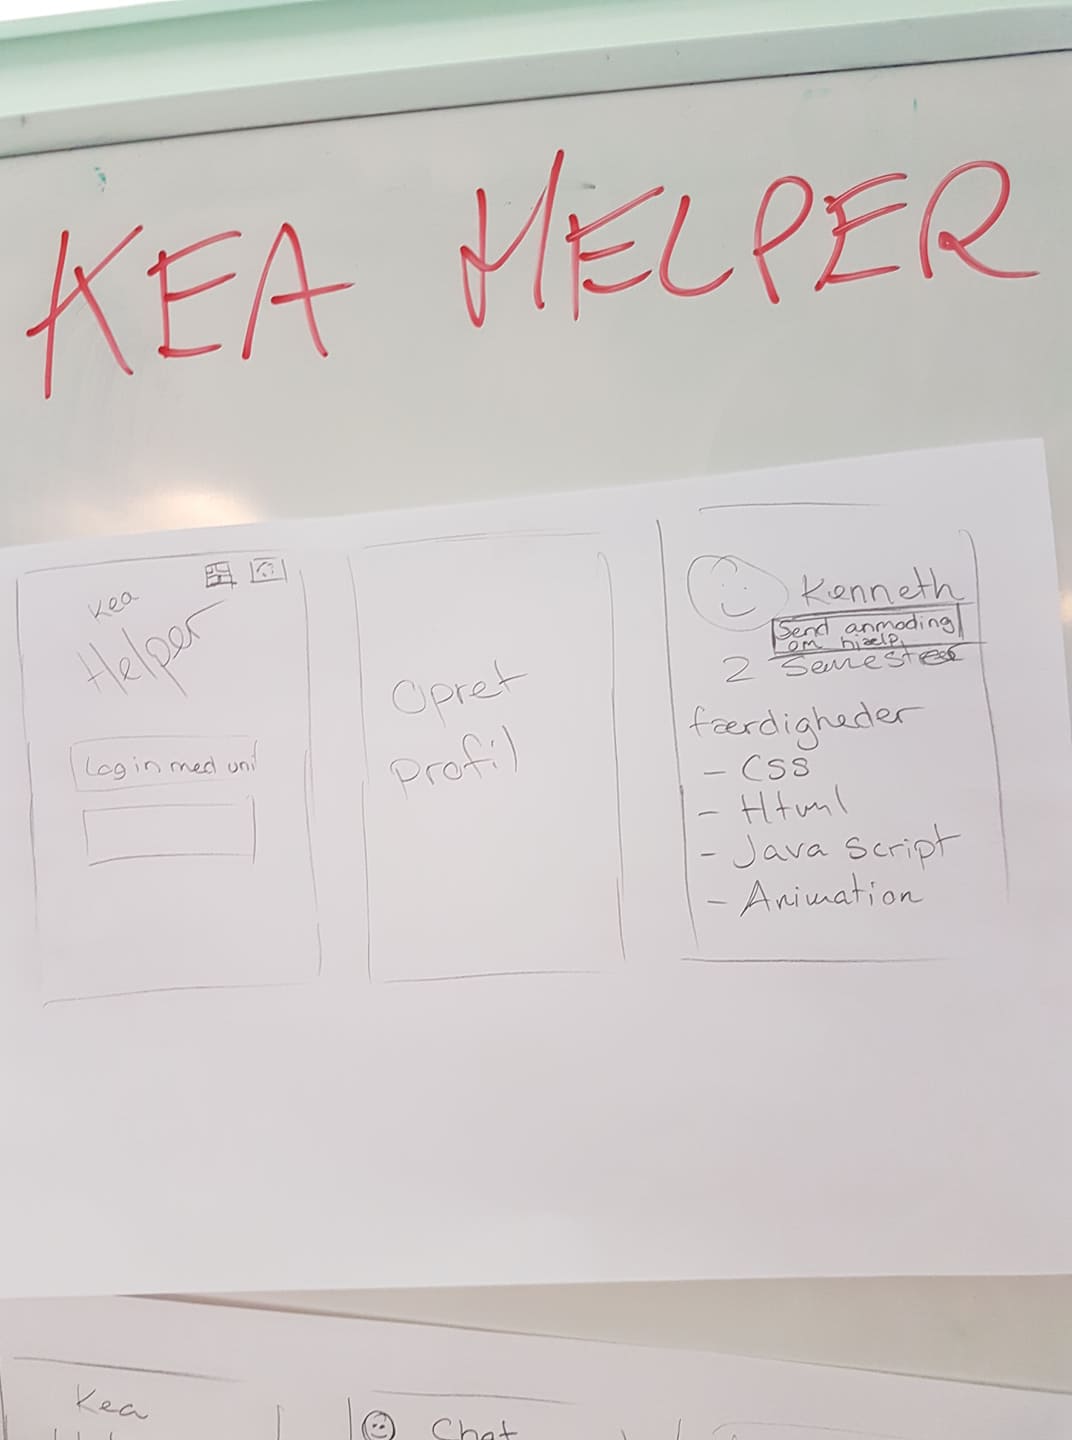 KEA HELPER
Kea
Helper
Log in med uni
Opret
profil
Kenneth
Send anmoding
om hjælp
2 Semester
færdigheder
- CSS
- Html
- Java script
- Animation
Kea
Chat